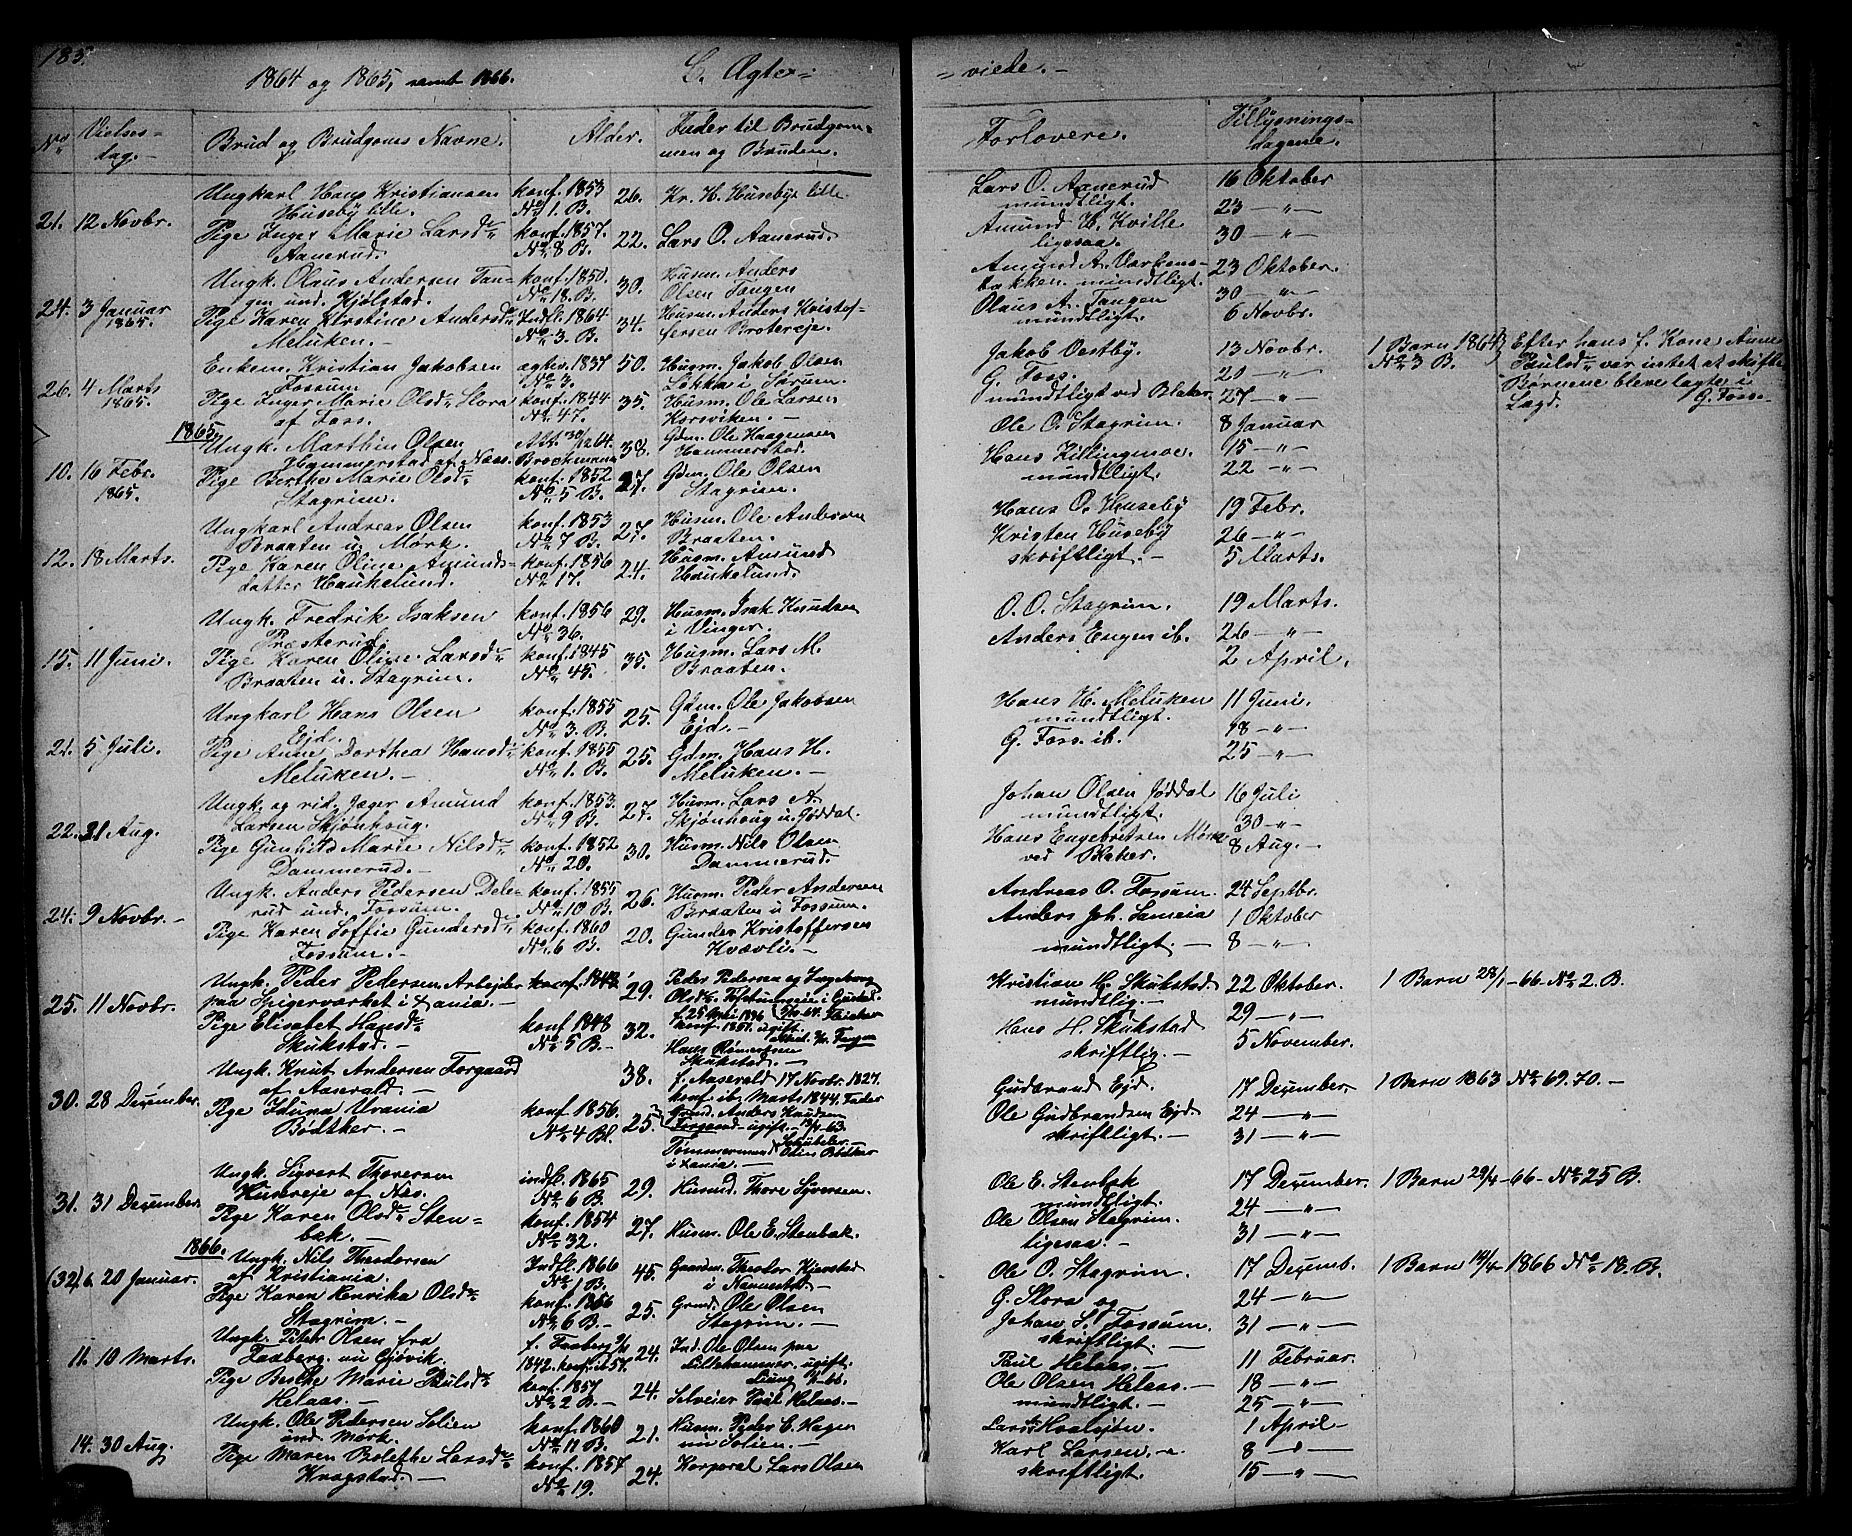 185.
1864 og 1865, samt 1866. C. Ægte=
=viede. -
No Vielses-dag. - Brud og Brudgoms Navne. Alder. Fader til Brudgommen og Bruden. Forlovere. Tillysnings-dagene.
Ungkarl Hans Kristiansen konf. 1853 26. Kr. H. Huseby lille Lars O. Aanerud 16 Oktober
Huseby lille. No 1. B. mundtligt. 23 -"-
21. 12 Novbr. Pige Inger Marie Larsd. konf. 1857. 22. Lars O. Aanerud. Amund H. Kville 30 -"-
Aanerud. No 8 B. ligesaa.
Ungk. Olaus Andersen Tan- konf. 1850. 30. Husm. Anders Amund A. Varkens- 23 Oktober.
gen und. Kjølstad. No 18. B. Olsen Tangen bakken. mundtligt. 30 -"-
24. 3 Januar Pige Karen Kirstine Andersd. Indfl. 1864 34. Husm. Anders Kristof- Olaus A. Tangen 6 Novbr.
1865. Meluken. - No 3. B. fersen Brotereje. mundtligt.
Enkem. Kristian Jakobsen ægtev. 1837 50. Husm. Jakob Olsen Jakob Vestby. 13 Novbr. 1 Barn 1864 Efter hans f. Kone Anne
Fossum No 3. Løkka i Sørum. G. Foss. 20 -"- No 3 B. Paulsd. var intet at skifte
26. 4 Marts Pige Inger Marie Olsd. Slora konf. 1844 35. Husm. Ole Larsen mundtligt ved Blaker 27 -"- Børnene bleve lagte i
1865. af Foss. No 47. Korsviken. - Lægd. G. Foss. -
1865.
Ungk. Marthin Olsen Att. 30/12 64. 38. Gdm. Ole Haagensen Ole O. Stagrim. 8 Januar
Hammerstad af Næs. Brochmann Hammerstad. 15 -"-
10. 16 Febr. Pige Berthe Marie Olsd. konf. 1852 27. Gdm. Ole Olsen Hans Killingmoe. 22 -"-
1865. Stagrim. No 5 B. Stagrim. mundtligt.
Ungkarl Andreas Olsen konf. 1853 27. Husm. Ole Andersen Hans O. Huseby 19 Febr.
Braaten u. Mørk. No 7 B. Braaten. Kristen Huseby 26 -"-
12. 18 Marts. Pige Karen Oline Amunds- konf. 1856 24. Husm. Amund skriftligt. - 5 Marts.
datter Haukelund. No 17. Haukelund.
Ungk. Fredrik Isaksen konf. 1856 29. Husm. Isak Knudsen O. O. Stagrim. 19 Marts.
Præsterud. No 36. i Vinger. Anders Engen ib. 26 -"-
15. 11 Juni. Pige Karen Oline Larsd. konf. 1845 35. Husm. Lars M. 2 April.
Braaten u. Stagrim. No 45. Braaten.
Ungkarl Hans Olsen konf. 1855 25. Gdm. Ole Jakobsen Hans H. Meluken 11 Juni.
Ejd. No 3. B. Ejd. - mundtligt. 18 -"-
21. 5 Juli. Pige Anne Dorthea Hansd. konf. 1855 25. Gdm. Hans H. G. Foss. ib. 25 -"-
Meluken. - No 1. B. Meluken. -
Ungk. og rid. Jæger Amund konf. 1853. 27. Husm. Lars A. Johan Olsen Jøddal 16 Juli
Larsen Skjønhoug. No 9 B. Skjønhoug u. Jøddal. mundtligt. 30 -"-
22. 31 Aug. Pige Gunhild Marie Nilsd. konf. 1852 30. Husm. Nils Olsen Hans Engebretsen Mørk 8 Aug. -
Dammerud. - No 20. Dammerud. ved Blaker.
Ungk. Anders Pedersen Dele- konf. 1855 26. Husm. Peder Andersen Andreas O. Fossum. 24 Septbr.
rud und. Fossum. No 10 B. Braaten u Fossum. Anders Joh. 1 Oktober
24. 9 Novbr. - Pige Karen Soffie Gundersd. konf. 1860 20. Gunder Kristoffersen mundtligt. - 8 -"-
Fossum. - No 6 B. Kvævli. -
Ungk. Peder Pedersen Arbejder konf. 1848 29. Peder Pedersen og Ingeborg Kristian H. Skukstad. 22 Oktober. 1 Barn 28/1 - 66. No 2. B.
25. 11 Novbr. paa Spigerværket i Xania. - mundtlig. - 29 -"-
Pige Elisabet Hansd. konf 1848 32. konf. 1851. ugift. Hans H. Skukstad 5 November.
Skukstad. - No 5 B. - Hans Skukstad. - skriftlig. -
Ungk. Knut Andersen Torgaard 38. f. Aaserald 17 Novbr. 1827. Gudbrand Ejd. 17 December. 1 Barn 1863 No 69. 70. -
af Aaserald. - konf. ib. Marts 1844. Fader
30. 28 December. Pige Iduna Urania konf. 1856. 25. Anders Knudsen Ole Gudbrandsen Ejd 24 -"-
Bødtker. - No 4 Bl. Tømmermand i Xania. - skriftligt. - 31 -"-
Ungk. Sigvert Thoresen indfl. 1865 29. Husmd. Thore Syversen. Ole E. Stenbak 17 December. 1 Barn 29/4 - 66 - No 25 B.
Husereje af Nes. No 6 B. mundtligt. 24 -"-
31. 31 December. Pige Karen Olsd. Sten- konf. 1854 27. Husm. Ole E. Stenbak. Ole Olsen Stagrim. 31 -"-
bak. - No 32. ligesaa. -
1866.
Ungk. Nils Theodorsen Indfl. 1866 45. Theodor Ole O. Stagrim. 17 Decemb. 1 Barn 14/4 1866 No 18. B.
(32) 6. 20 Januar. af Kristiania. No 1 B. i Nannestad. G. Slora og 24 -"-
Pige Karen Henrika Olsd. konf. 1856 25. Ole Olsen Johan S. Fossum. 31 -"-
Stagrim. - No 6 B. - Stagrim. - skriftligt. -
Ungk. Peter Olsen fra f. Faaberg 24. Ind. Ole Olsen paa Paul Helaas. - 11 Februar.
11. 10 Marts. Faaberg. nu Gjøvik. 1842. konf. ib. 57. Lillehammer. ugift. Ole Olsen Helaas. - 18 -"-
Pige Berthe Marie Paulsd. konf. 1857 24. Selveier Paul Helaas. - mundtligt. - 25 -"-
Helaas. - No 2 B. -
Ungk. Ole Pedersen Solien konf. 1860 21. Husm. Peder E. Hagen Lars 1 April -
und. Mørk. No 11 B. nu Solien. - Karl Larsen. - 8 -"-
14. 30 Aug. Pige Maren Bolethe Larsd. konf. 1857 24. Korporal Lars Olsen skriftligt. 15 -"-
Kragstad. - No 19.